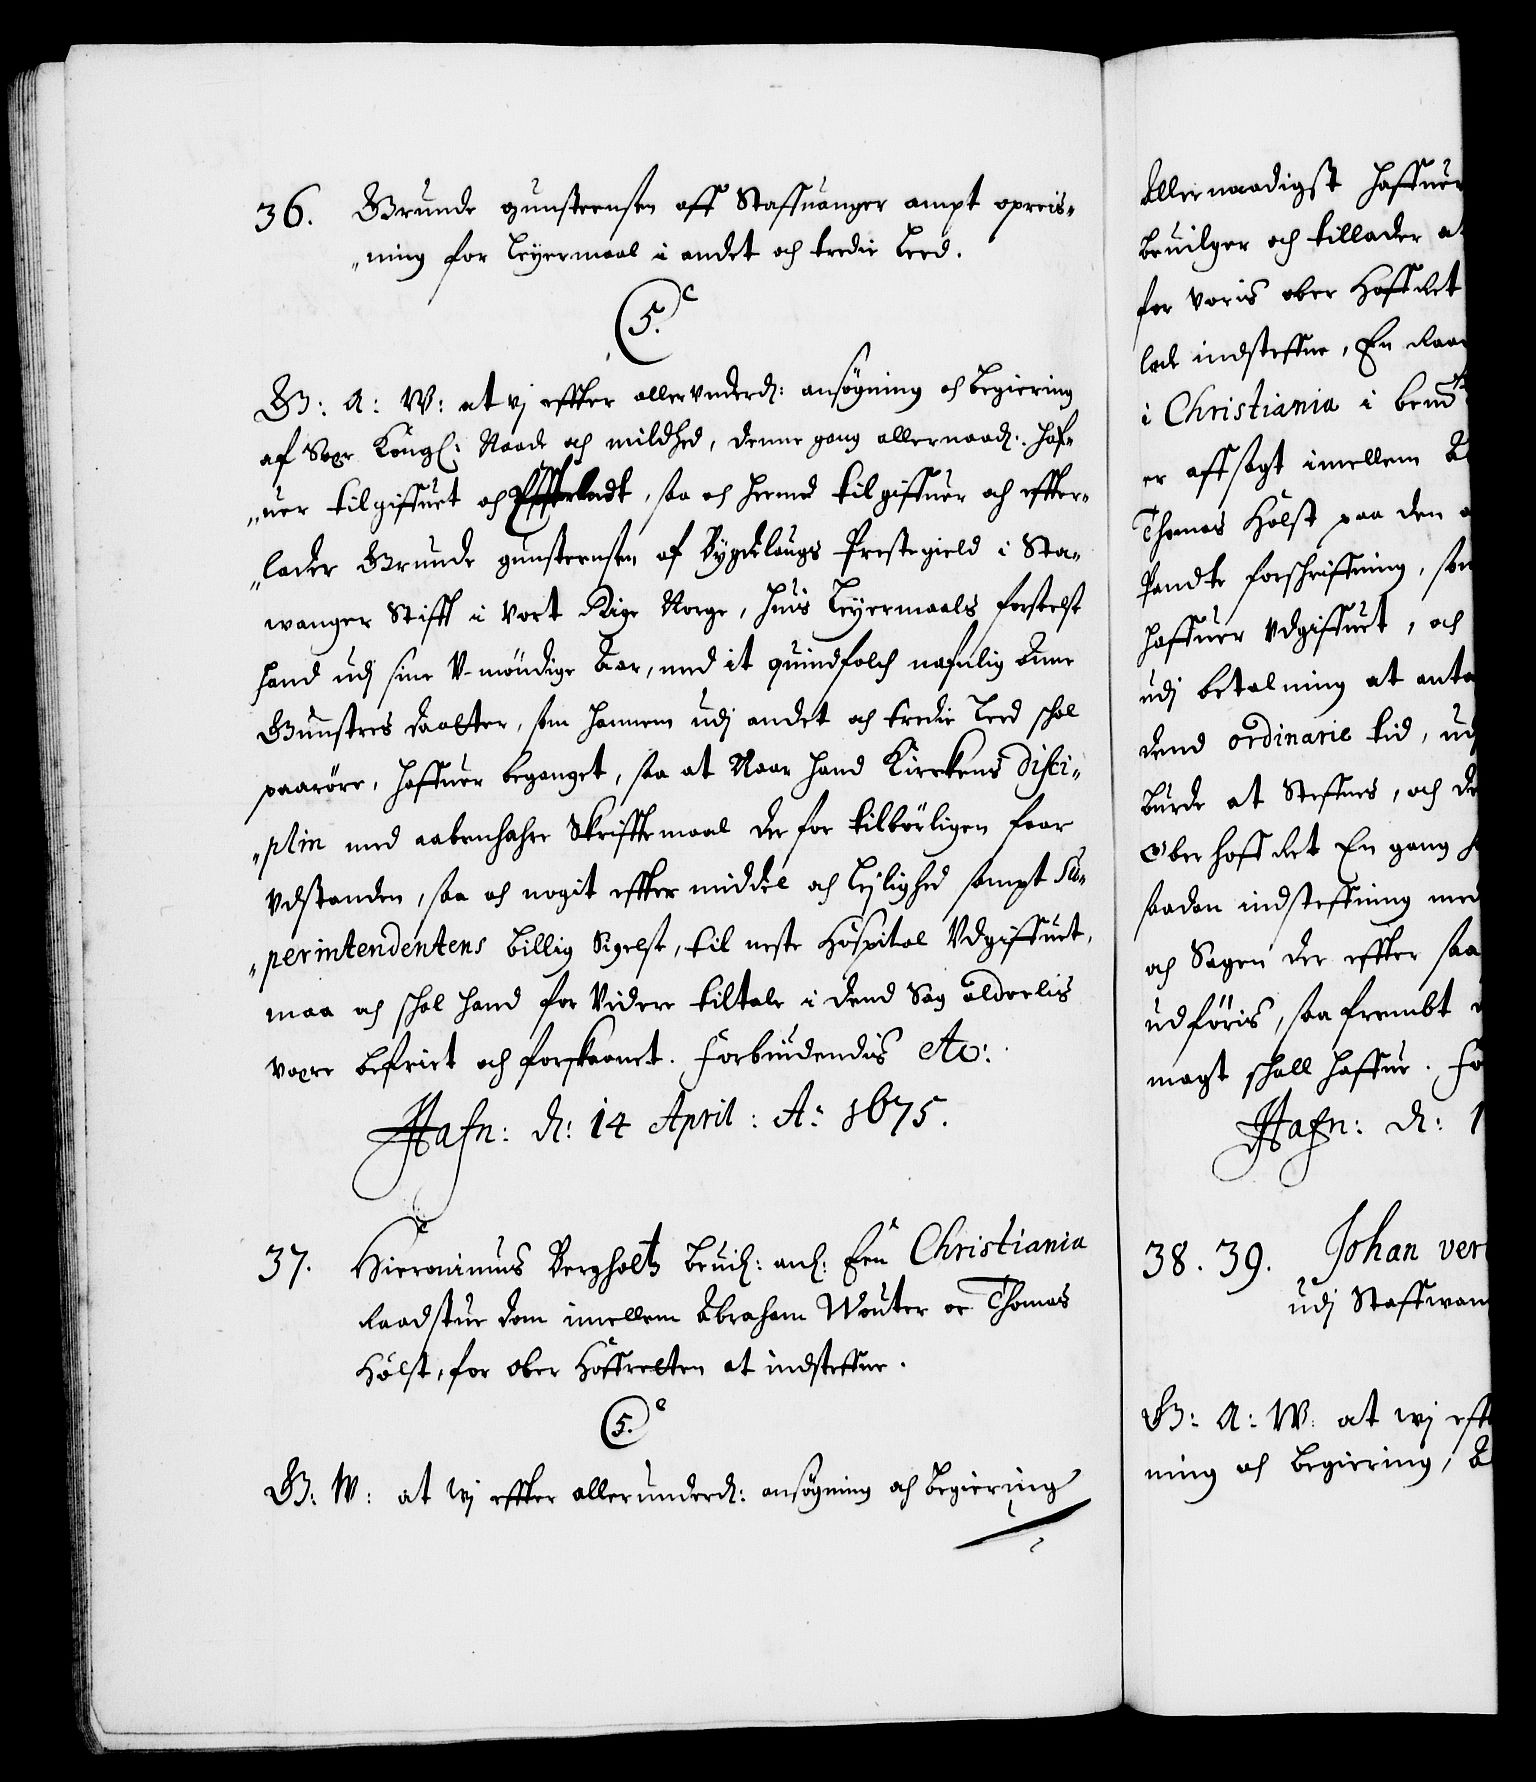 36. Grunde gunsteensen aff Staffuanger ampt opreis-
ning for Leyermaal i andet och tredie Leed.
C 5.
G: A: W: at vj effter allervnderd: ansögning och begiering
af Sær Kongl: Naade och mildhed, denne gang allernaad: haf-
uer tilgiffuet och Effterladt, saa och hermed tilgiffuer och effter-
lader Grunde gunsteensen af Bygdelaugs Prestegield i Sta-
wanger Stifft i Vort Rige Norge, huis Leyermaals forseelse
hand udj sine V-möndige Aar, med it quindfolch nafnlig Anne
Gunstres daatter, som hannem udj andet och tredie Leed schal
paaröre, haffuer beganget, saa at Naar hand Kirckens disci-
plin med aabenbahre Skrifftemaal der for tilbörligen haar
vdstanden, saa och nogit effter middel och Leylighed sampt Su-
perintendentens billig Sigelse, til neste Hospital Vdgiffuet,
maa och schal hand for Videre tiltale i dend Sag aldeelis
være befriet och forskaanet. Forbiudendis etc:
Hafn: d: 14 April: A: 1675.
37. Hieronimus Bergholtz bevil: anl: Een Christiania
Raadstue dom imellem Abraham Wouter oc Thomas
Holst, for ober Hoffretten at indsteffne.
C 5.
G: W: at wj effter allerunderd: ansögning och begiering
Allernaadigst haffuer
beuilger och tillader at
for voris ober Hoffret
lade indsteffne, En Raad
i Christiania i
er affsagt imellem A
Thomas Holst paa den
Pandte forschriffuning, som
haffuer vdgiffuet, och
udj betalning at anta
dend ordinarie tid, udj
burde at Steffnes, och de
Oberhoffret En gang
saadan indsteffning med
och Sagen der effter saa
udföris, saafrembt
magt schall haffue. Fo
Hafn: d: 1
38. 39. Johan ver
udj Staffwan
G: A: W: at wj eff
ning och begiering, A